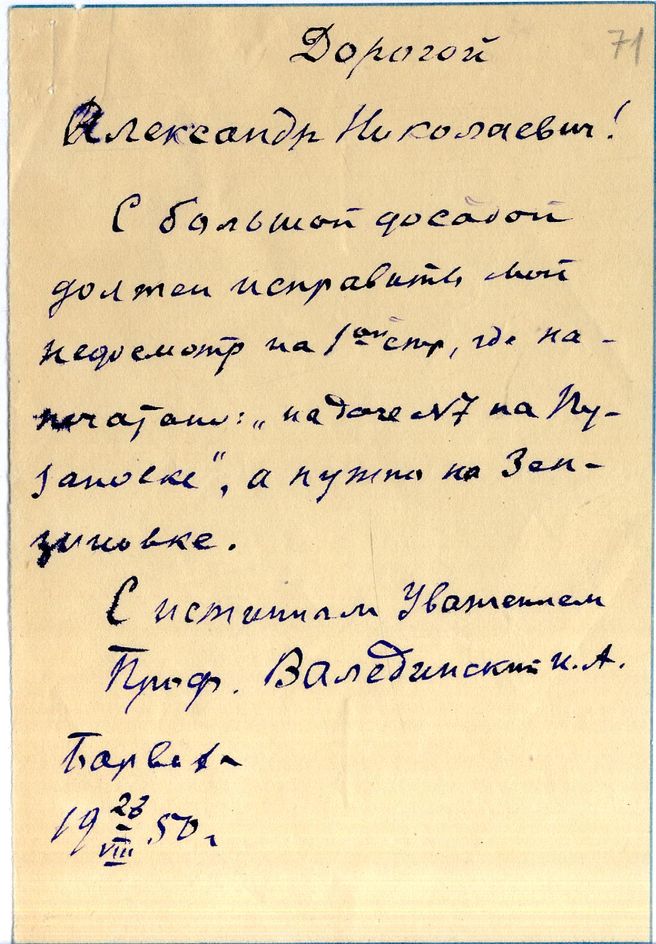 71
Дорогой
Александр Николаевич!
С большой досадой
должен исправить мой
недосмотр на 1ой стр, где на-
печатано: „на даче №7 на Пу-
зановке“, а нужно на Зен-
зиновке.
С истинным Уважением
Проф. Валединский И.А.
Барвиха
19 28/VIII 50 г